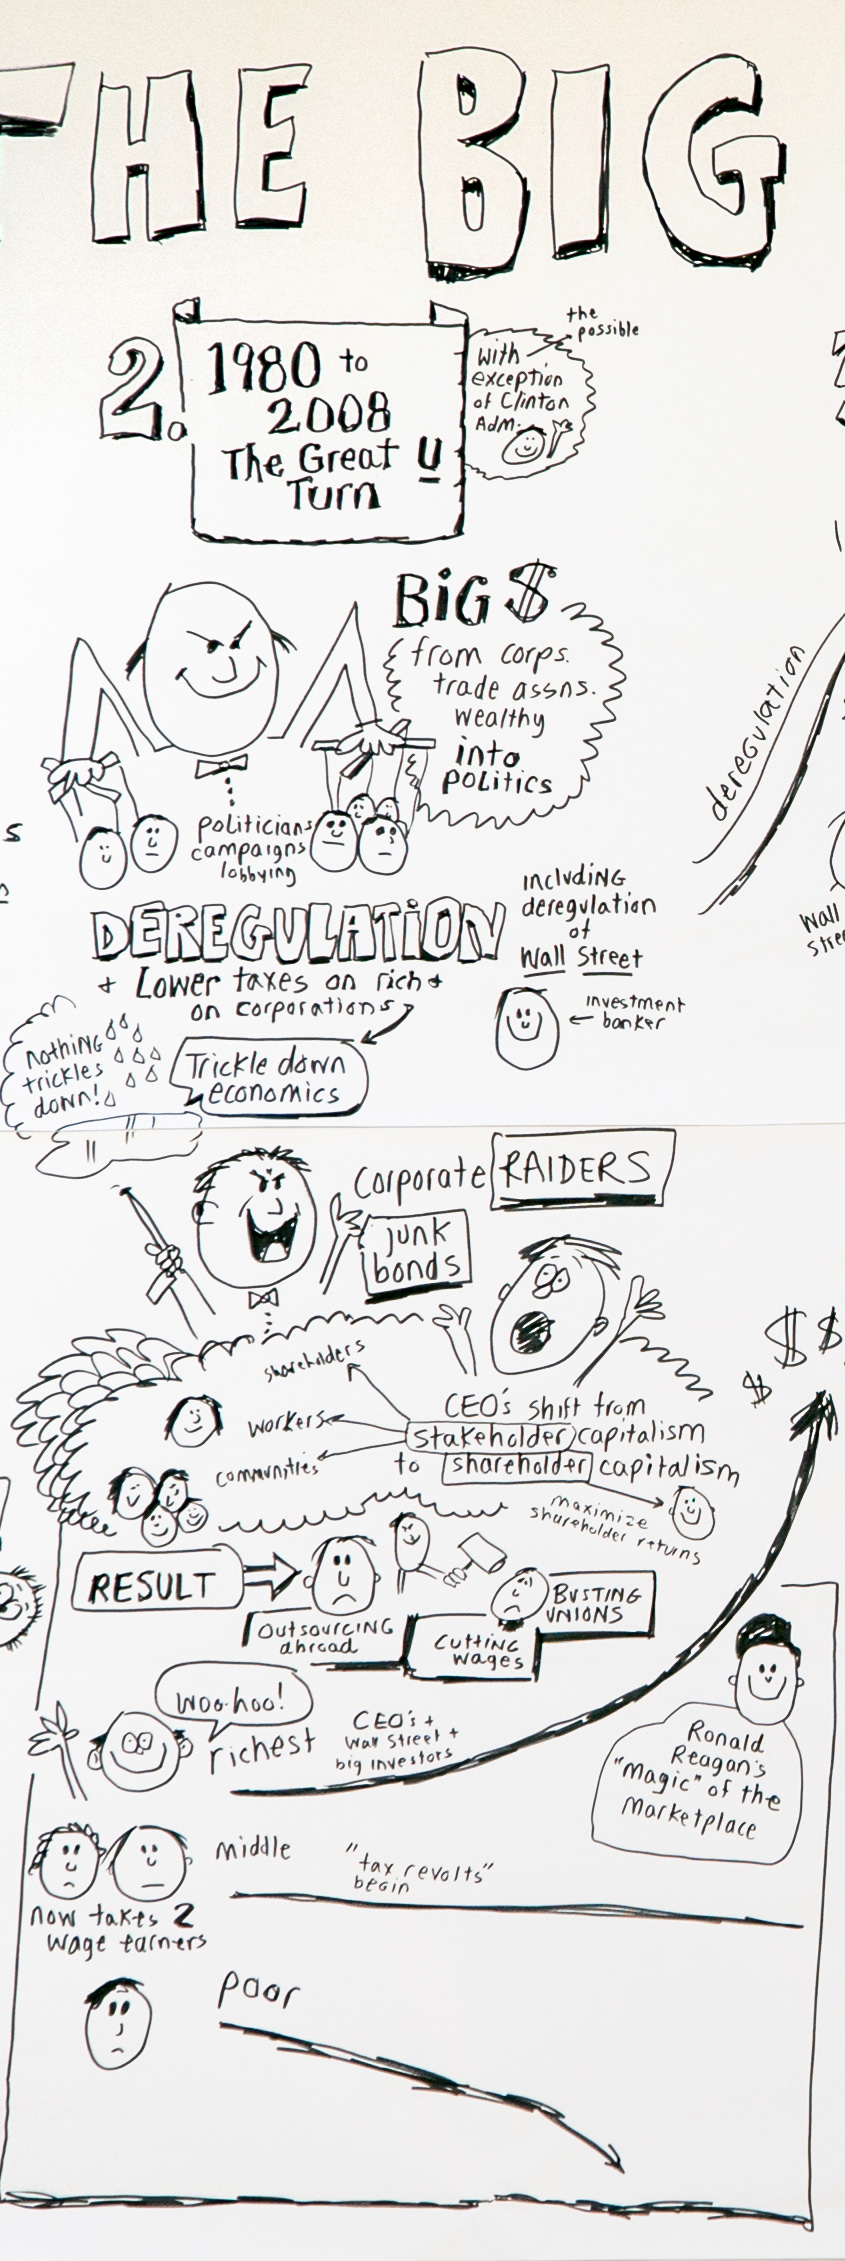 THE BIG
2.
1980 to
2008
The Great U
Turn
the
possible
with
exception
of Clinton
Adm.
BIG $
from corps.
trade assns.
wealthy
into
politics
politicians
campaigns
lobbying
DEREGULATION
+ Lower taxes on rich +
on corporations
including
deregulation
of
Wall Street
investment
banker
nothing
trickles
down!
Trickle down
economics
deregulation
Wall
Corporate RAIDERS
junk
bonds
shareholders
workers
communities
CEO's shift from
stakeholder capitalism
to shareholder capitalism
maximize
shareholder returns
$ $ $
RESULT
Outsourcing
abroad
Cutting
wages
BUSTING
UNIONS
woo-hoo!
richest
CEO's +
Wall Street +
big investors
Ronald
Reagan's
"magic" of the
Marketplace
middle
"tax revolts"
begin
now takes 2
wage earners
poor